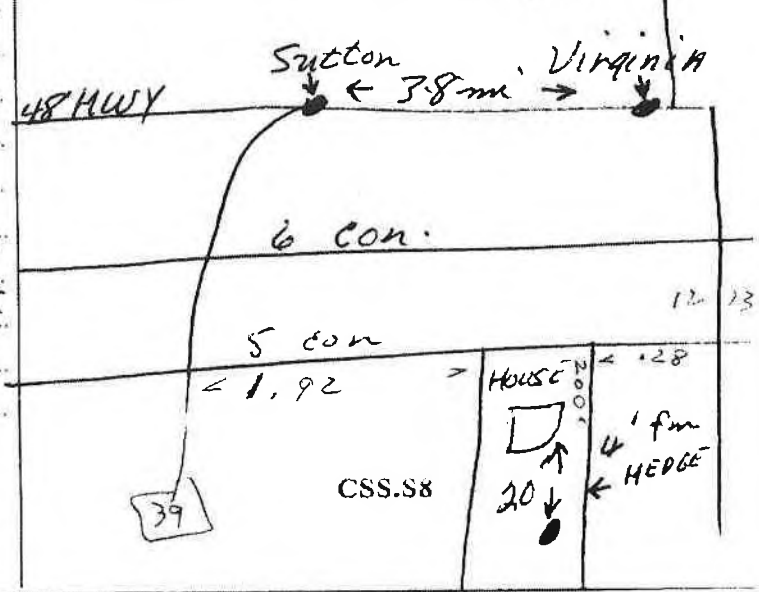 Sutton Virginia
48 HWY ← 3.8 mi →
6 con.
12 13
5 con
< 1.92 > HOUSE 200' < .28
4' fm
HEDGE
CSS.S8 20
39